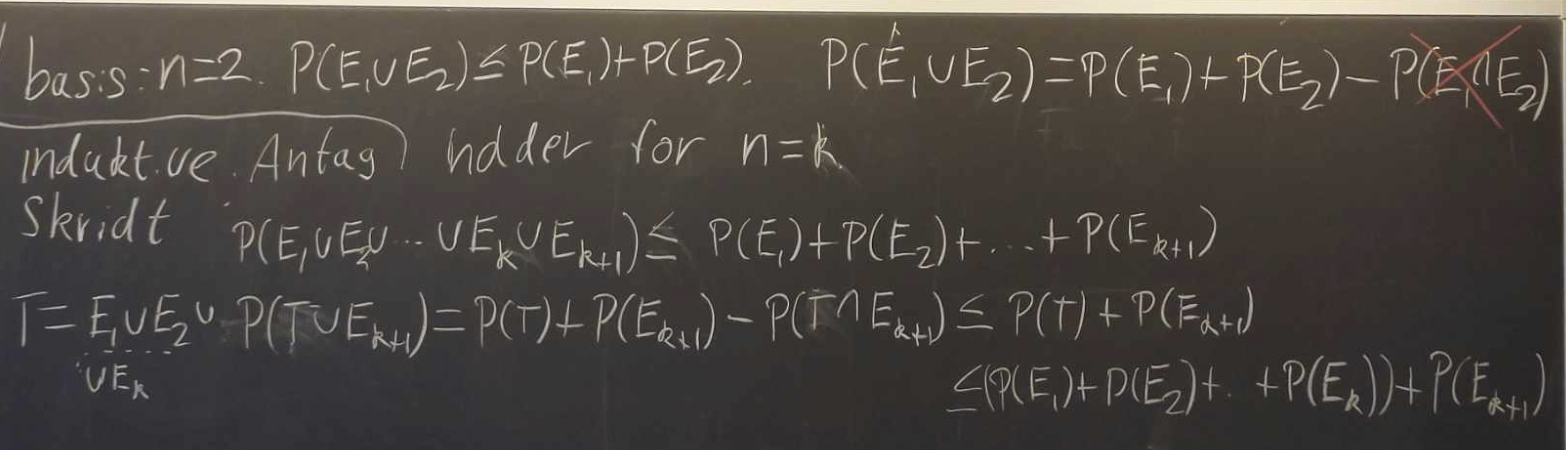 basis: n=2. P(E₁∪E₂) ≤ P(E₁)+P(E₂). P(E₁∪E₂)=P(E₁)+P(E₂)−P(E₁∩E₂)
induktive. Antag holder for n=k
Skridt P(E₁∪E₂∪...∪Eₖ∪Eₖ₊₁) ≤ P(E₁)+P(E₂)+...+P(Eₖ₊₁)
T=E₁∪E₂∪ P(T∪Eₖ₊₁)=P(T)+P(Eₖ₊₁)−P(T∩Eₖ₊₁) ≤ P(T)+P(Eₖ₊₁)
...∪Eₖ ≤(P(E₁)+P(E₂)+..+P(Eₖ))+P(Eₖ₊₁)